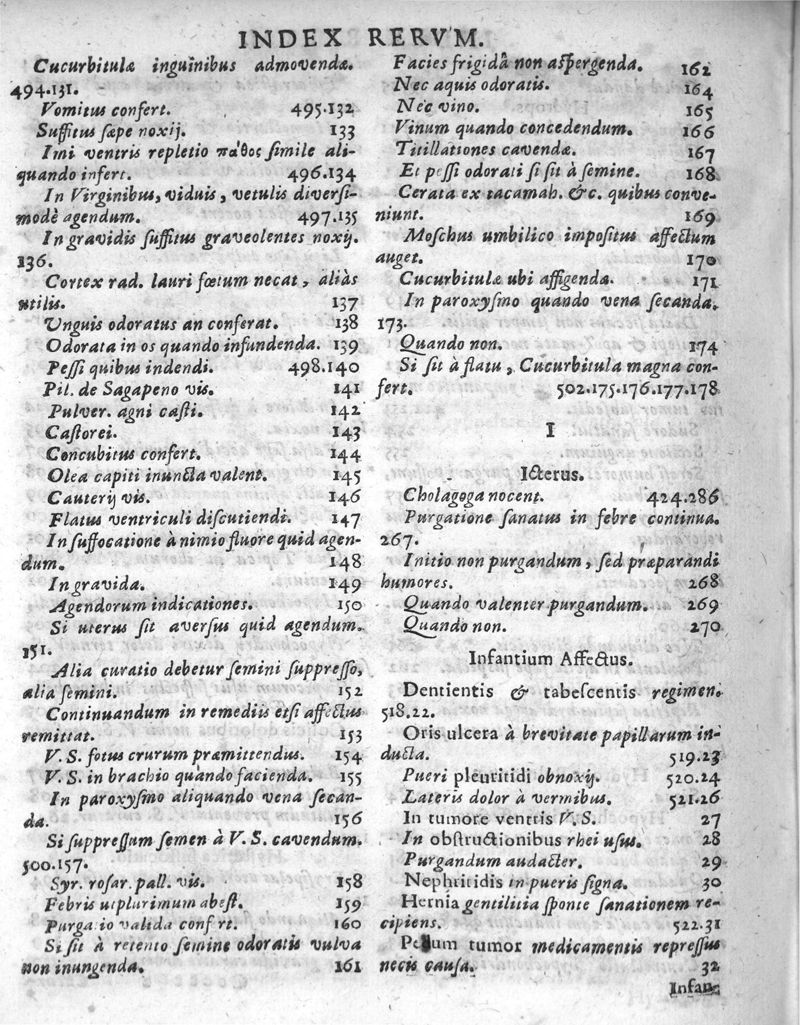 INDEX RERVM.
Cucurbitulæ inguinibus admovendæ.
494.131.
Vomitus confert. 495.132
Suffitus sæpe noxij. 133
Imi ventris repletio παθος simile ali-
quando infert. 496.134
In Virginibus, viduis, vetulis diversi-
modè agendum. 497.135
In gravidis suffitus graveolentes noxij.
136.
Cortex rad. lauri fœtum necat, aliàs
utilis. 137
Unguis odoratus an conferat. 138
Odorata in os quando infundenda. 139
Pessi quibus indendi. 498.140
Pil. de Sagapeno vis. 141
Pulver. agni casti. 142
Castorei. 143
Concubitus confert. 144
Olea capiti inuncta valent. 145
Cauterij vis. 146
Flatus ventriculi discutiendi. 147
In suffocatione à nimio fluore quid agen-
dum. 148
In gravida. 149
Agendorum indicationes. 150
Si uterus sit aversus quid agendum.
151.
Alia curatio debetur semini suppresso,
alia semini. 152
Continuandum in remediis etsi affectus
remittat. 153
V. S. fotus crurum præmittendus. 154
V. S. in brachio quando facienda. 155
In paroxysmo aliquando vena secan-
da. 156
Si suppressum semen à V. S. cavendum.
500.157.
Syr. rosar. pall. vis. 158
Febris utplurimum abest. 159
Purgatio valida conf rt. 160
Si sit à retento semine odoratis vulva
non inungenda. 161
Facies frigidâ non aspergenda. 162
Nec aquis odoratis. 164
Nec vino. 165
Vinum quando concedendum. 166
Titillationes cavendæ. 167
Et pessi odorati si sit à semine. 168
Cerata ex tacamah. &c. quibus conve-
niunt. 169
Moschus umbilico impositus affectum
auget. 170
Cucurbitulæ ubi affigendæ. 171
In paroxysmo quando vena secanda.
173.
Quando non. 174
Si sit à flatu, Cucurbitula magna con-
fert. 502.175.176.177.178
I
Icterus.
Cholagoga nocent. 424.286
Purgatione sanatus in febre continua.
267.
Initio non purgandum, sed præparandi
humores. 268
Quando valenter purgandum. 269
Quando non. 270
Infantium Affectus.
Dentientis & tabescentis regimen.
518.22.
Oris ulcera à brevitate papillarum in-
ducta. 519.23
Pueri pleuritidi obnoxij. 520.24
Lateris dolor à vermibus. 521.26
In tumore ventris V. S. 27
In obstructionibus rhei usus. 28
Purgandum audacter. 29
Nephritidis in pueris signa. 30
Hernia gentilitia sponte sanationem re-
cipiens. 522.31
tumor medicamentis repressus
necis causa. 32
Infan-